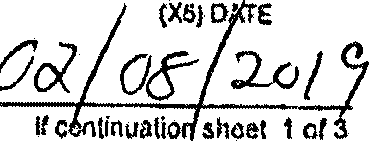 (X5) DATE
02/08/2019
If continuation sheet 1 of 3